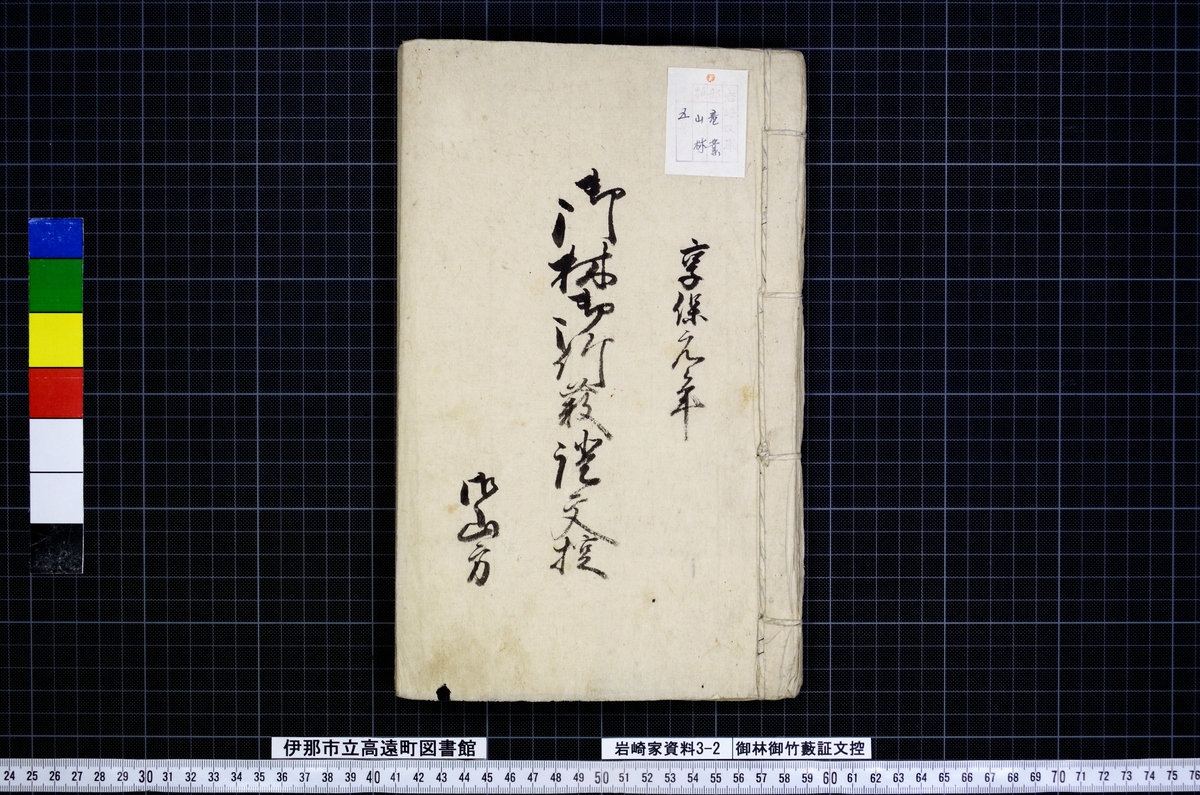 産業
山林
五
享保元年
御林御竹藪證文控
御山方
伊那市立高遠町図書館
岩崎家資料3-2
御林御竹藪証文控
24 25 26 27 28 29 30 31 32 33 34 35 36 37 38 39 40 41 42 43 44 45 46 47 48 49 50 51 52 53 54 55 56 57 58 59 60 61 62 63 64 65 66 67 68 69 70 71 72 73 74 75 76